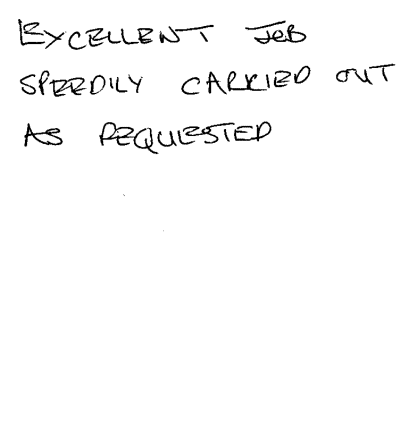 EXCELLENT JOB
SPEEDILY CARRIED OUT
AS REQUESTED